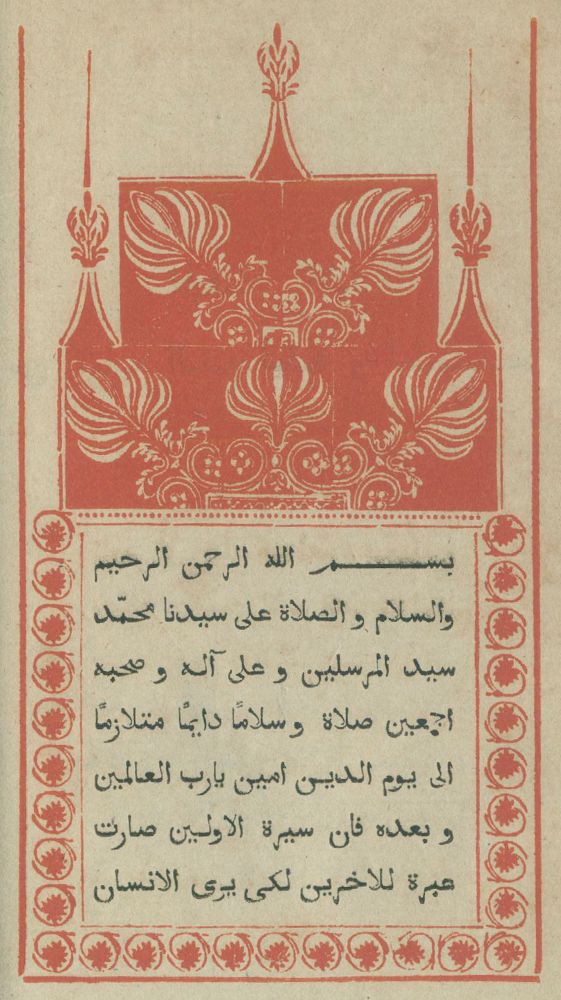 بسم الله الرحمن الرحيم
والسلام والصلاة على سيدنا محمّد
سيد المرسلين وعلى آله وصحبه
اجمعين صلاة وسلامًا دايمًا متلازمًا
الى يوم الدين امين يارب العالمين
وبعده فان سيرة الاولين صارت
عبرة للاخرين لكى يرى الانسان